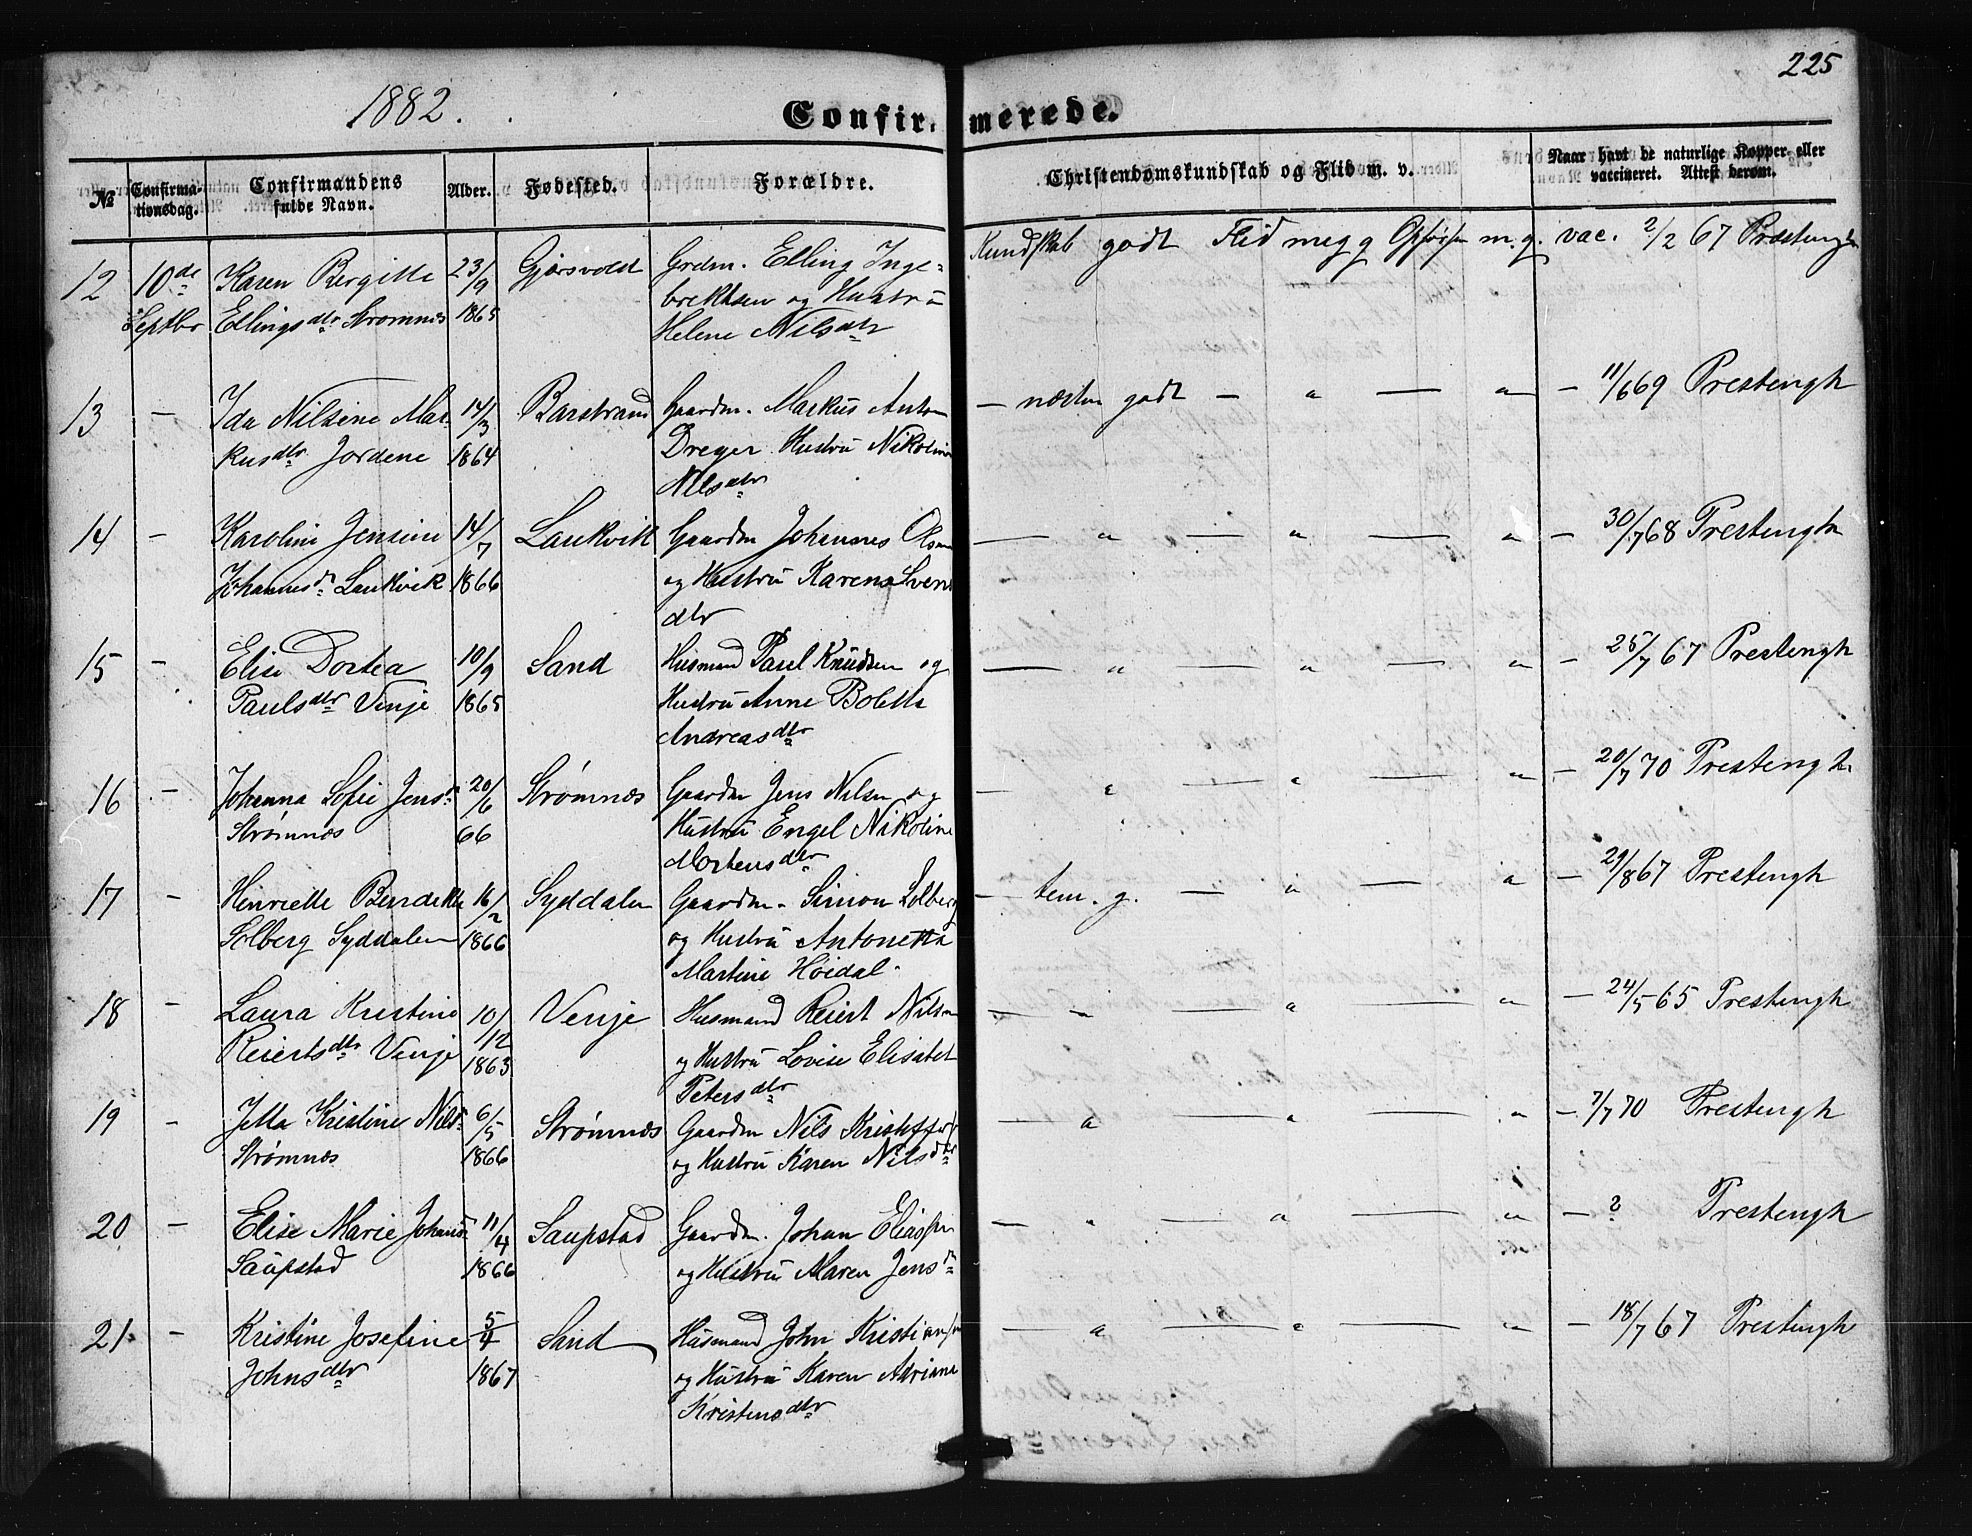 225
1882.
Confirmerede.
№
Confirmationsdag.
Confirmandens fulde Navn.
Alder.
Fødested.
Forældre.
Christendomskundskab og Flid m. v.
Naar havt de naturlige Kopper eller vaccineret. Attest derom.
12 10de Karen Bergitte 23/9 Gjærsvold Grdm. Elling Inge- Kundskab godt Flid meg g Opførsen m. g. vac. 2/2 67 Præstengh
Septbr Ellingsdtr Strømnes 1865 brektsen og Hustru
Helene Nilsdtr
13 – Ida Nilsine Mar- 14/3 Barstrand Gaardm. Markus Anton – næsten godt – " — " – 11/6 69 Prestengh
kusdtr Jordene 1864 Dreyer Hustru Nikoline
Nilsdtr
14 – Karoline Jensine 14/7 Laukvik Gaardm Johannes Olsen — " — " — " – 30/7 68 Prestengh
Johannesdr Laukvik 1866 og Hustru Karen Svens
dtr
15 – Elise Dortea 10/9 Sand Husmand Paul Knudsen og — " — " — " – 25/7 67 Prestengh
Paulsdtr Venje 1865 Hustru Anne Boletta
Andreasdtr
16 – Johanna Sofie Jensdr 20/6 Strømnæs Gaardm Jens Nilsen og – " — " — " – 20/7 70 Prestengh
Strømnæs 66 Hustru Engel Nikoline
Mortensdtr
17 – Henriette Bendikte 16/2 Syddalen Gaardm. Simon Solberg – tem. g. — " — " – 29/8 67 Prestengh
Solberg Syddalen 1866 og Hustru Antonetta
Martine Høidal.
18 – Laura Kristine 10/12 Venje Husmand Reiert Nilsen — " — " — " – 24/5 65 Prestengh
Reiertsdtr Venje 1863 og Hustru Lovise Elisabet
Petersdtr
19 – Jetta Kristine Nilsdr 6/5 Strømnæs Gaardm Nils Kristoffers — " — " — " – 7/7 70 Prestengh
Strømnæs 1866 og Hustru Karen Nilsdtr
20 – Elise Marie Johansdr 11/4 Saupstad Gaardm. Johan Eliassen — " — " — " – ? Prestengh
Saupstad 1866 og Hustru Maren Jensdr
21. – Kristine Josefine 5/4 Sand Husmand John Kristiansen — " — " — " – 18/7 67 Prestengh
Johnsdtr 1867 og Hustru Karen Adriana
Kristensdtr